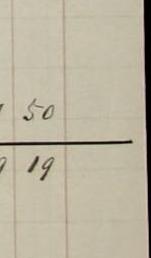 50
19